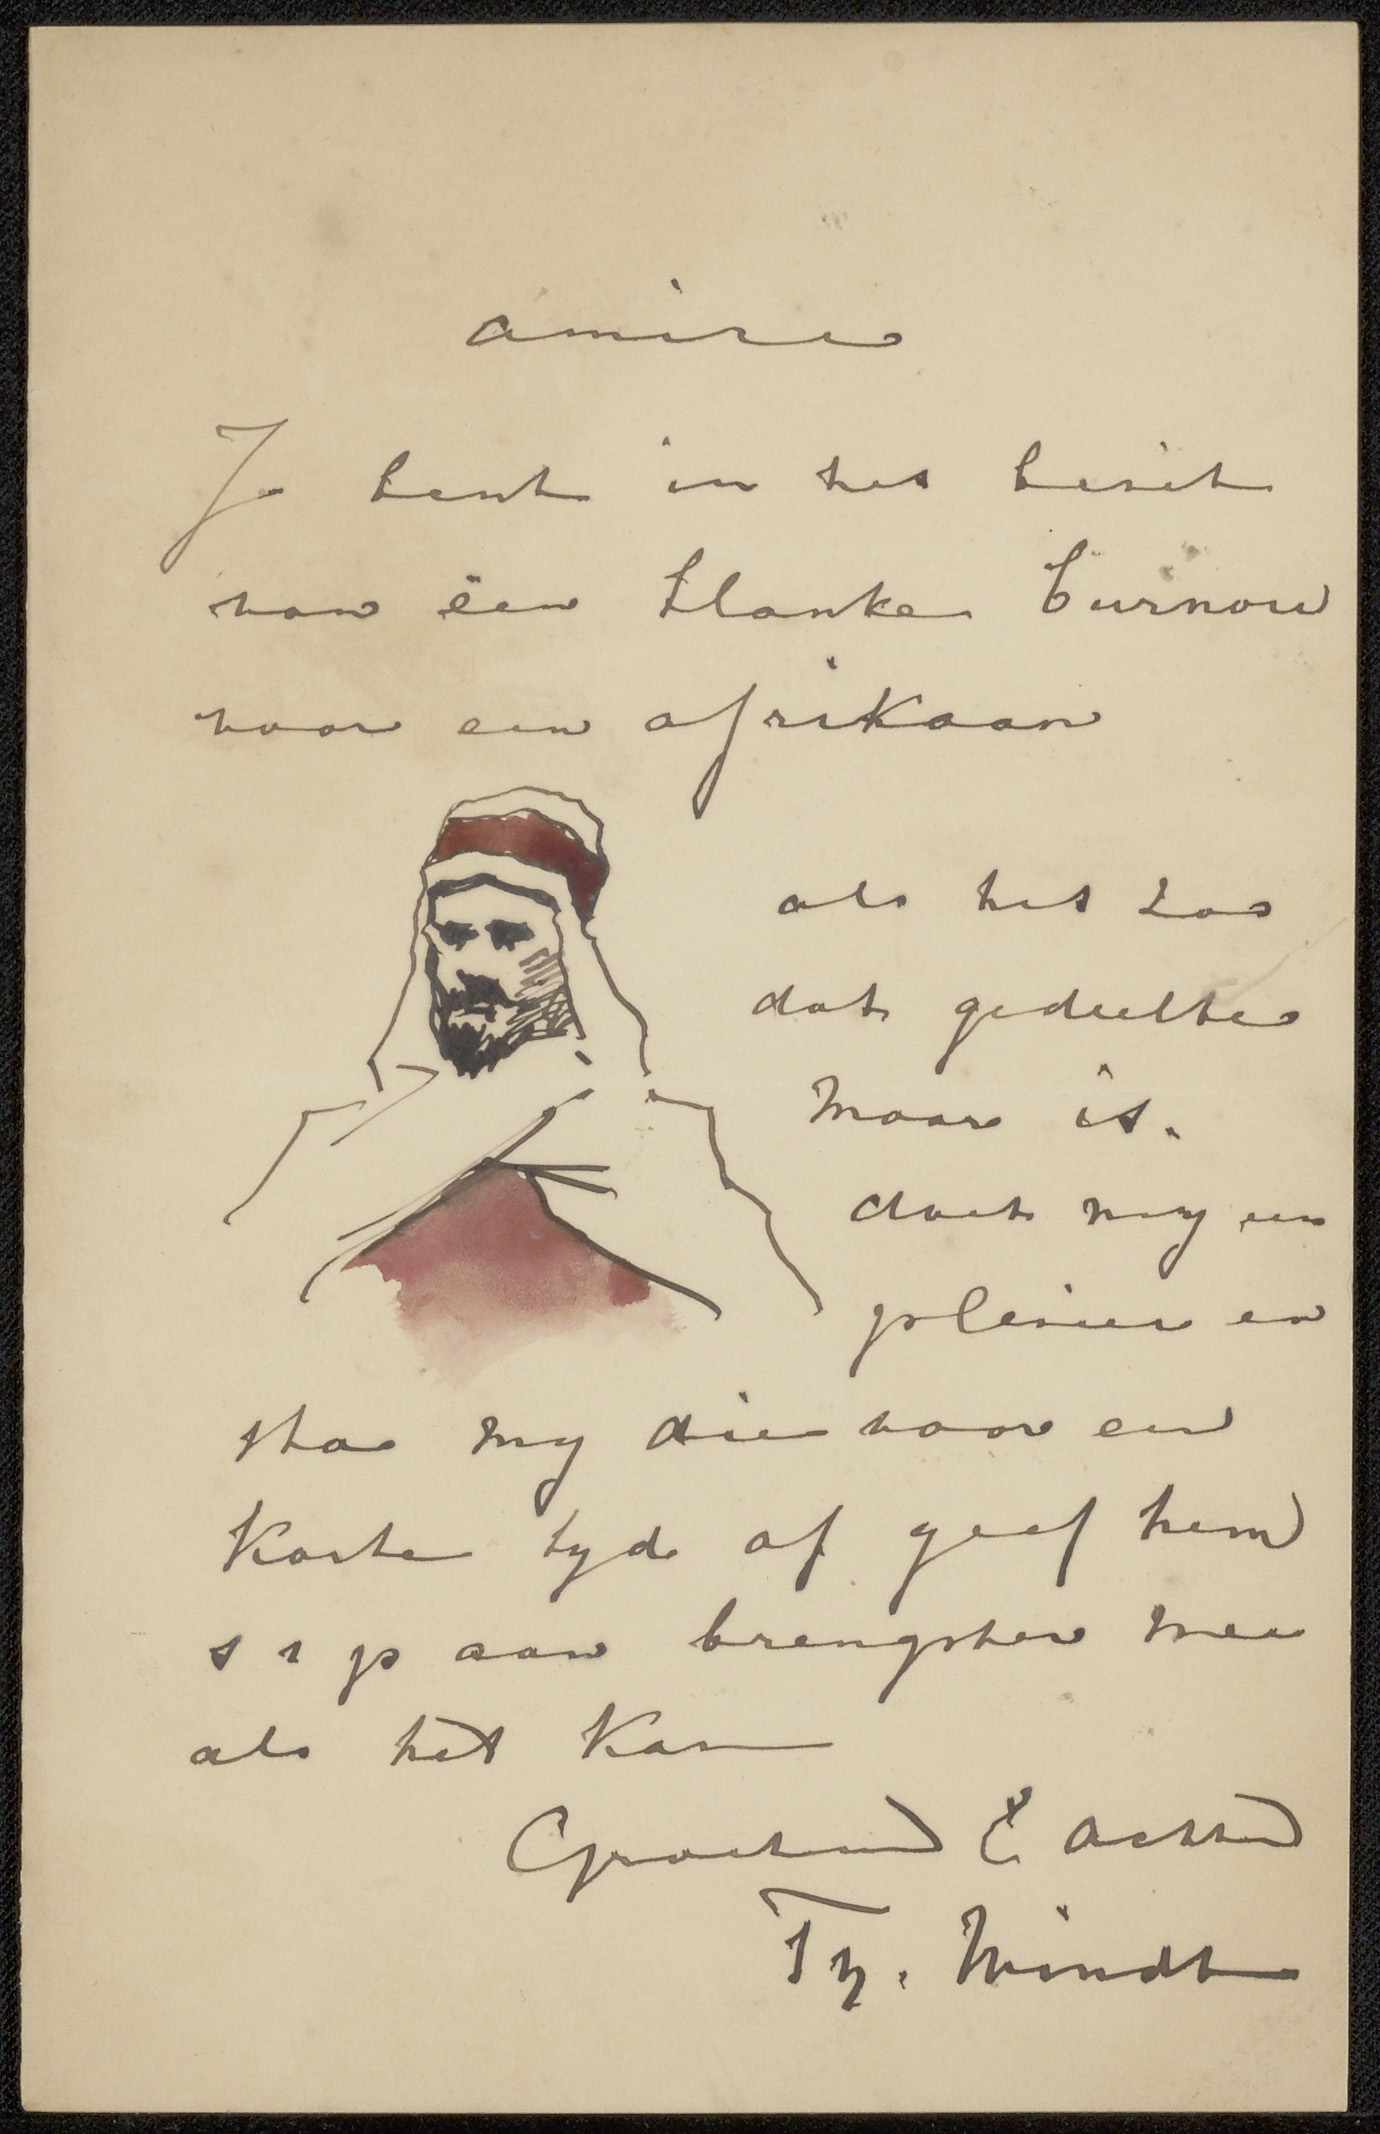 amice
Je bent in het bezit
van een blanke burnou
voor een afrikaan
als het zoo
dat gedeelte
maar is.
doet my een
plesier en
sta my die voor een
korte tyd af geef hem
s v p aan brengster mee
als het kan
Groetend & achtend
Ty.